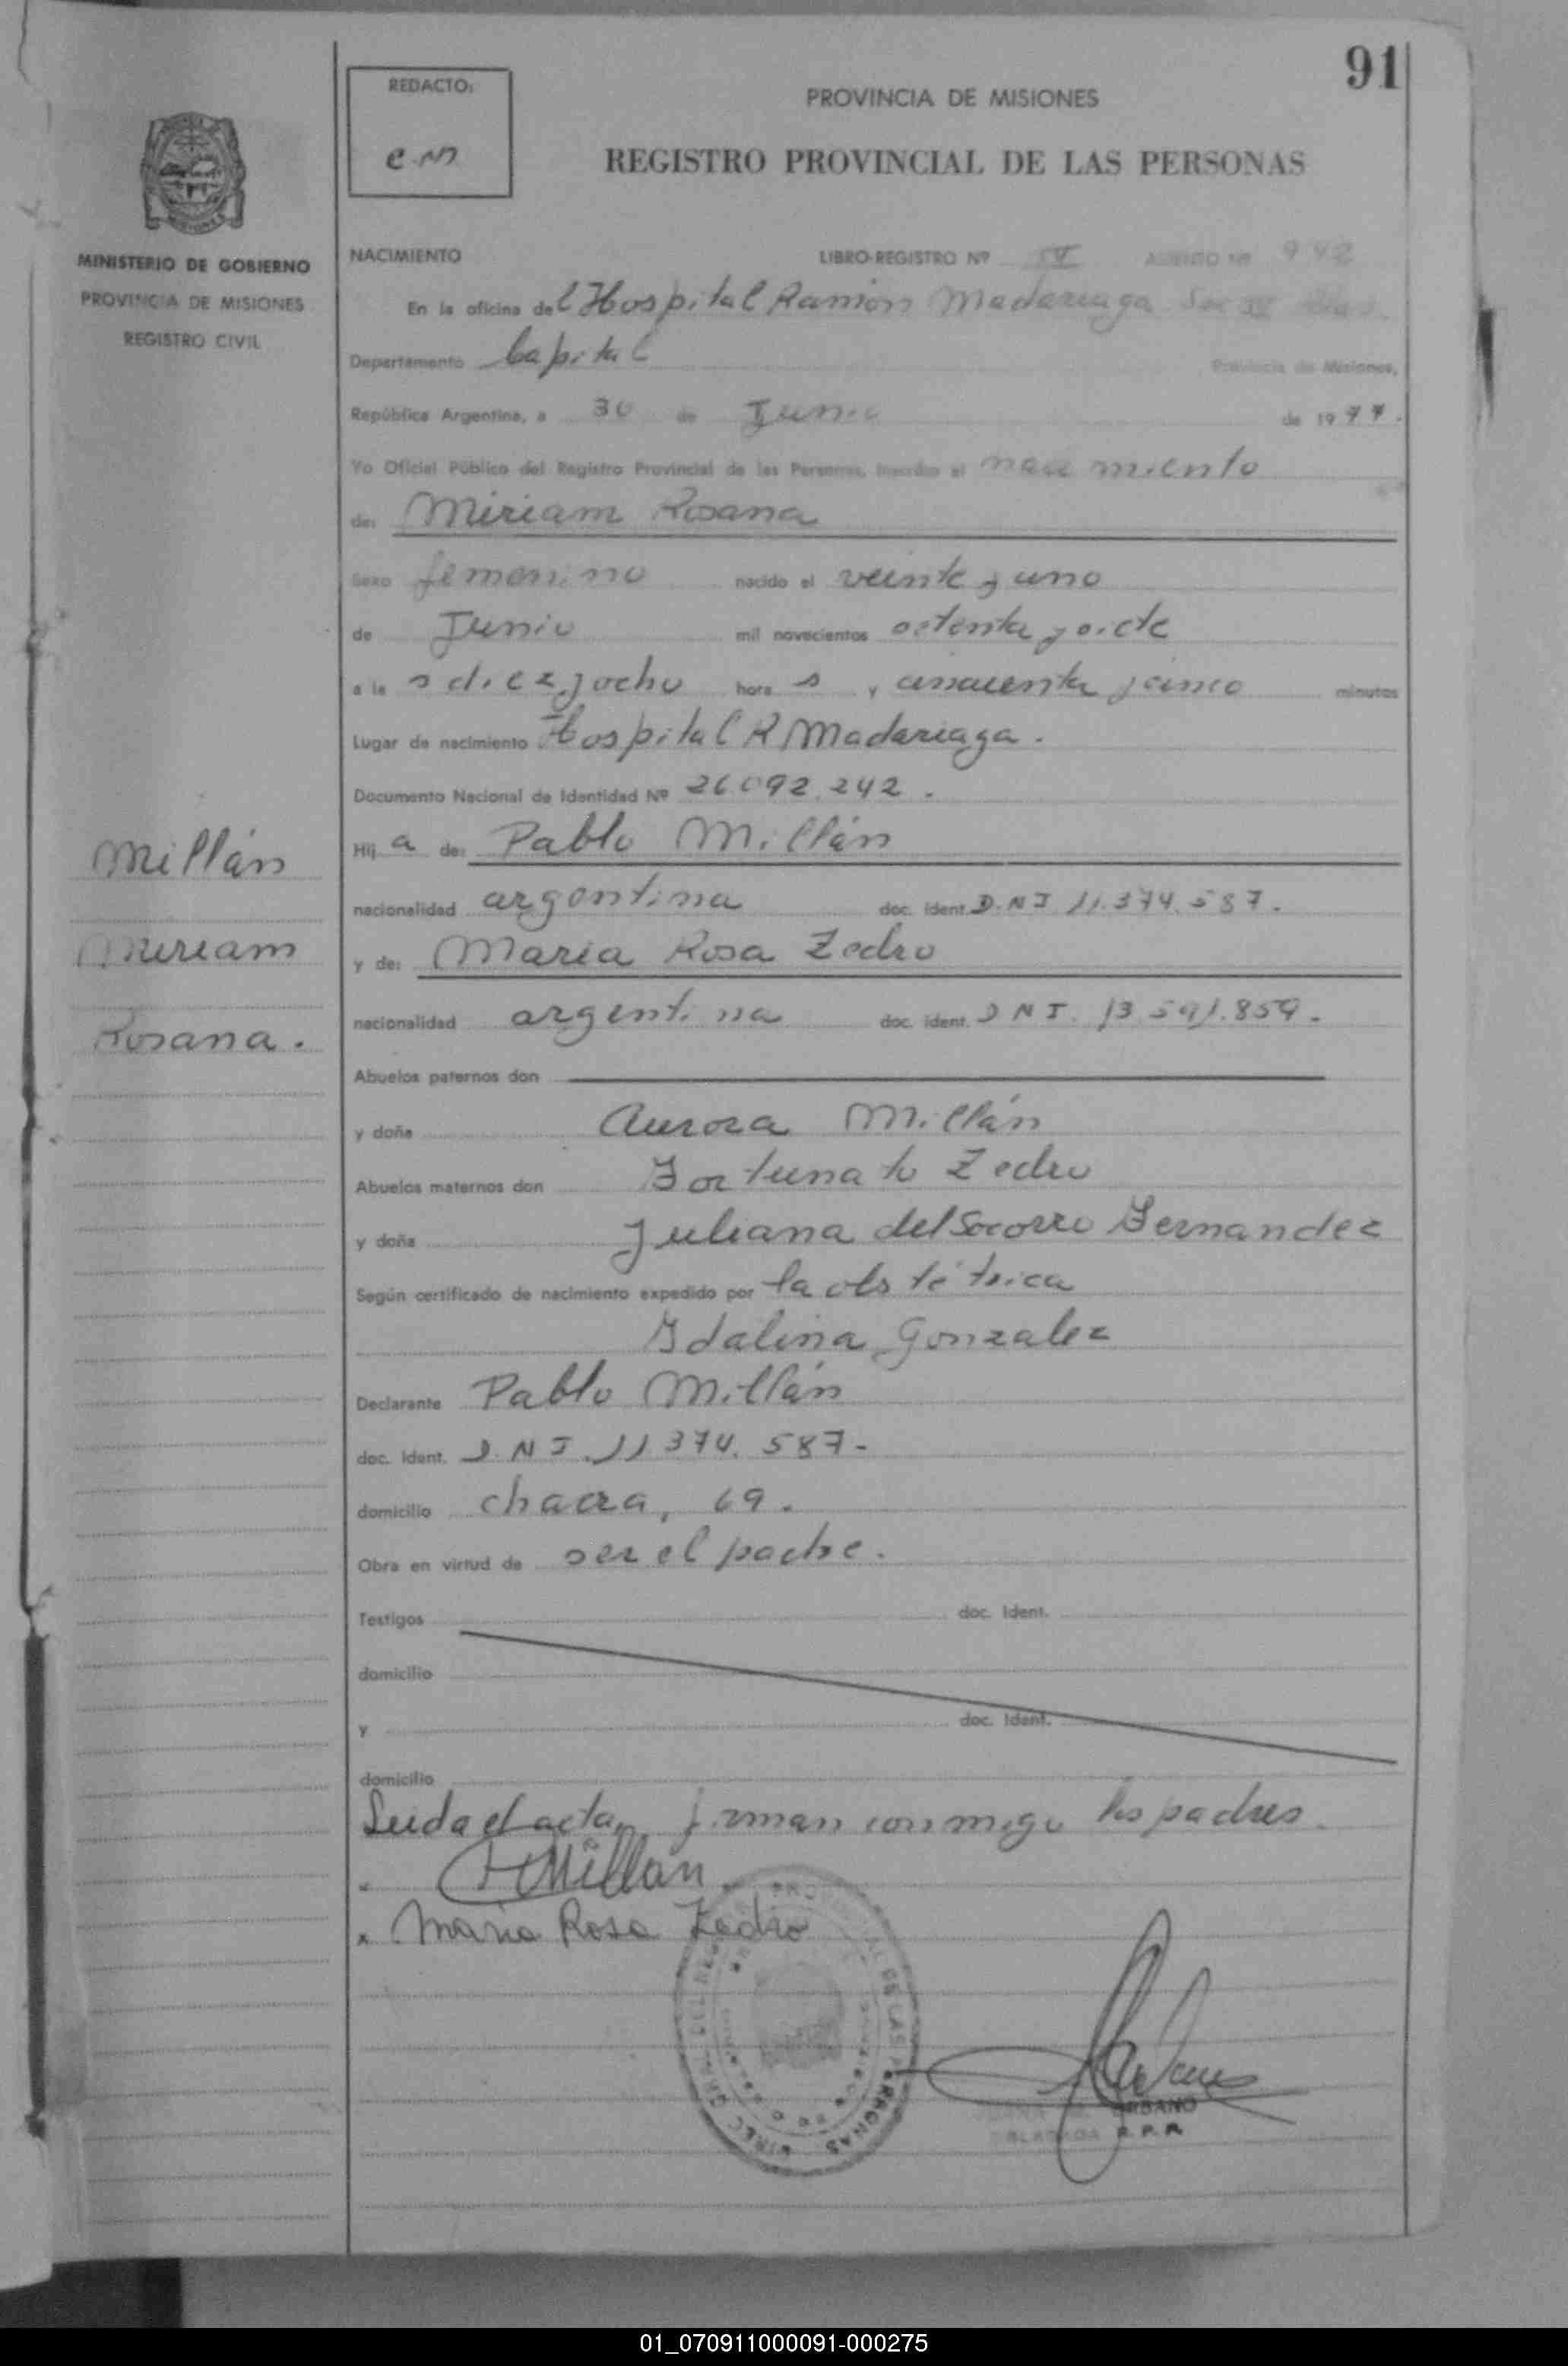 91
REDACTO:
e.m
PROVINCIA DE MISIONES
REGISTRO PROVINCIAL DE LAS PERSONAS
MINISTERIO DE GOBIERNO
PROVINCIA DE MISIONES
REGISTRO CIVIL
NACIMIENTO LIBRO-REGISTRO Nº IV ASIENTO Nº 992
En la oficina del Hospital Ramón Madariaga Sec IV
Departamento Capital Provincia de Misiones,
República Argentina, a 30 de Junio de 1977.
Yo Oficial Público del Registro Provincial de las Personas, inscribo el nacimiento
de: Miriam Rosana
Sexo femenino nacido el veinte y uno
de Junio mil novecientos setenta y siete
a las diez y ocho horas y cincuenta y cinco minutos
Lugar de nacimiento Hospital R Madariaga.
Documento Nacional de Identidad Nº 26.092.242.
Hija de: Pablo Millán
nacionalidad argentina doc. ident. D.N.I 11.374.587.
y de: Maria Rosa Zedro
nacionalidad argentina doc. ident. D N I. 13.591.859.
Abuelos paternos don
y doña Aurora Millán
Abuelos maternos don Fortunato Zedro
y doña Juliana del Socorro Fernandez
Según certificado de nacimiento expedido por la obstétrica
Idalina Gonzalez
Declarante Pablo Millán
doc. ident. D.N.I. 11 374.587-
domicilio chacra, 69.
Obra en virtud de ser el padre.
Testigos doc. ident.
domicilio
y doc. ident.
domicilio
Leida el acta, firman conmigo los padres.
Millan
x Maria Rosa Zedro
URBANO
R.P.P.
Millán
Miriam
Rosana.
01_070911000091-000275